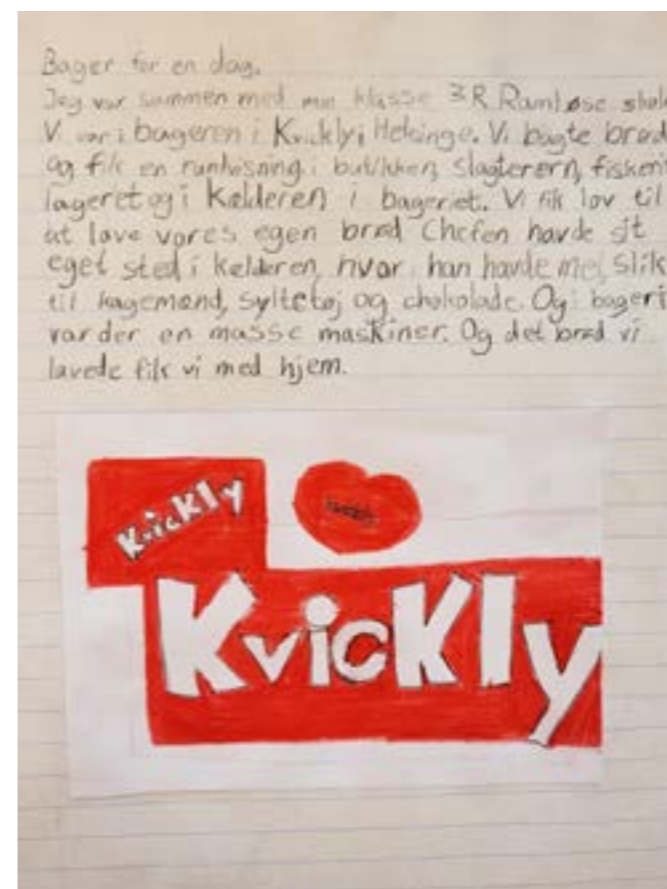 Bager for en dag.
Jeg var sammen med min klasse 3R Ramløse skole
Vi var i bageren i Kvickly i Helsinge. Vi bagte brød
og fik en runhisning i butikken, slagterern, fisken
lageret og i Kælderen i bageriet. Vi fik lov til
at lave vores egen brød Chefen havde sit
eget sted i kælderen, hvor han havde slik
til kagemænd, syltetøj og chokolade. Og i bageri
var der en masse maskiner. Og det brød vi
lavede fik vi med hjem.
Kvickly
Kvickly